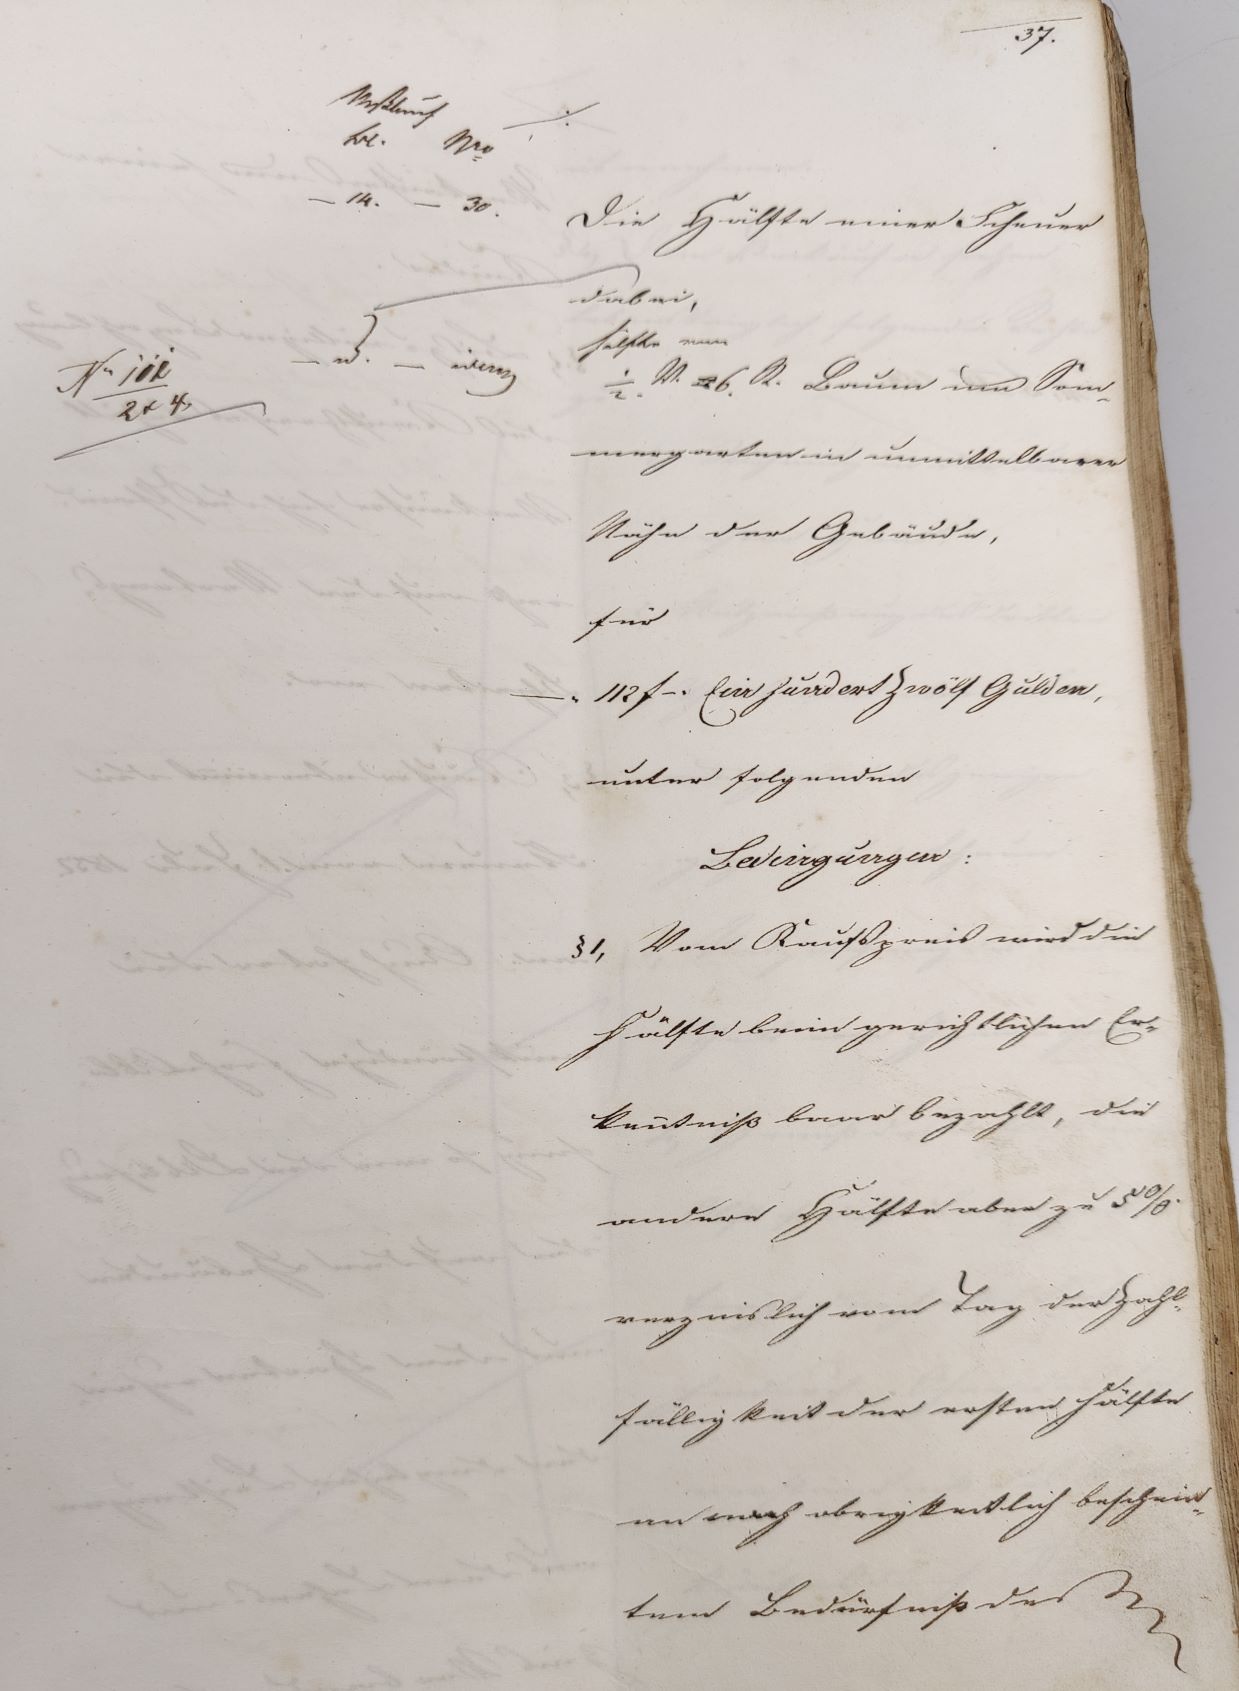 37.
Meßbuch ./.
Bl. Nro
— 14. — 30. Die Hälfte einer Scheuer
dabei,
Hälfte von
— id. — idem ½. V. 6. R. Baum und Som-
No
2 & 4.
mergarten in unmittelbarer
Nähe der Gebäude,
für
—. 112 f —. Ein hundert Zwölf Gulden,
unter folgenden
Bedingungen:
§ 1, Vom Kaufspreis wird die
Hälfte beim gerichtlichen Er-
kentniß baar bezahlt, die
andere Hälfte aber zu 5 %.
verzinslich vom Tag der Zahl-
fälligkeit der ersten Hälfte
an nach obrigkeitlich beschein-
tem Bedürfniß des